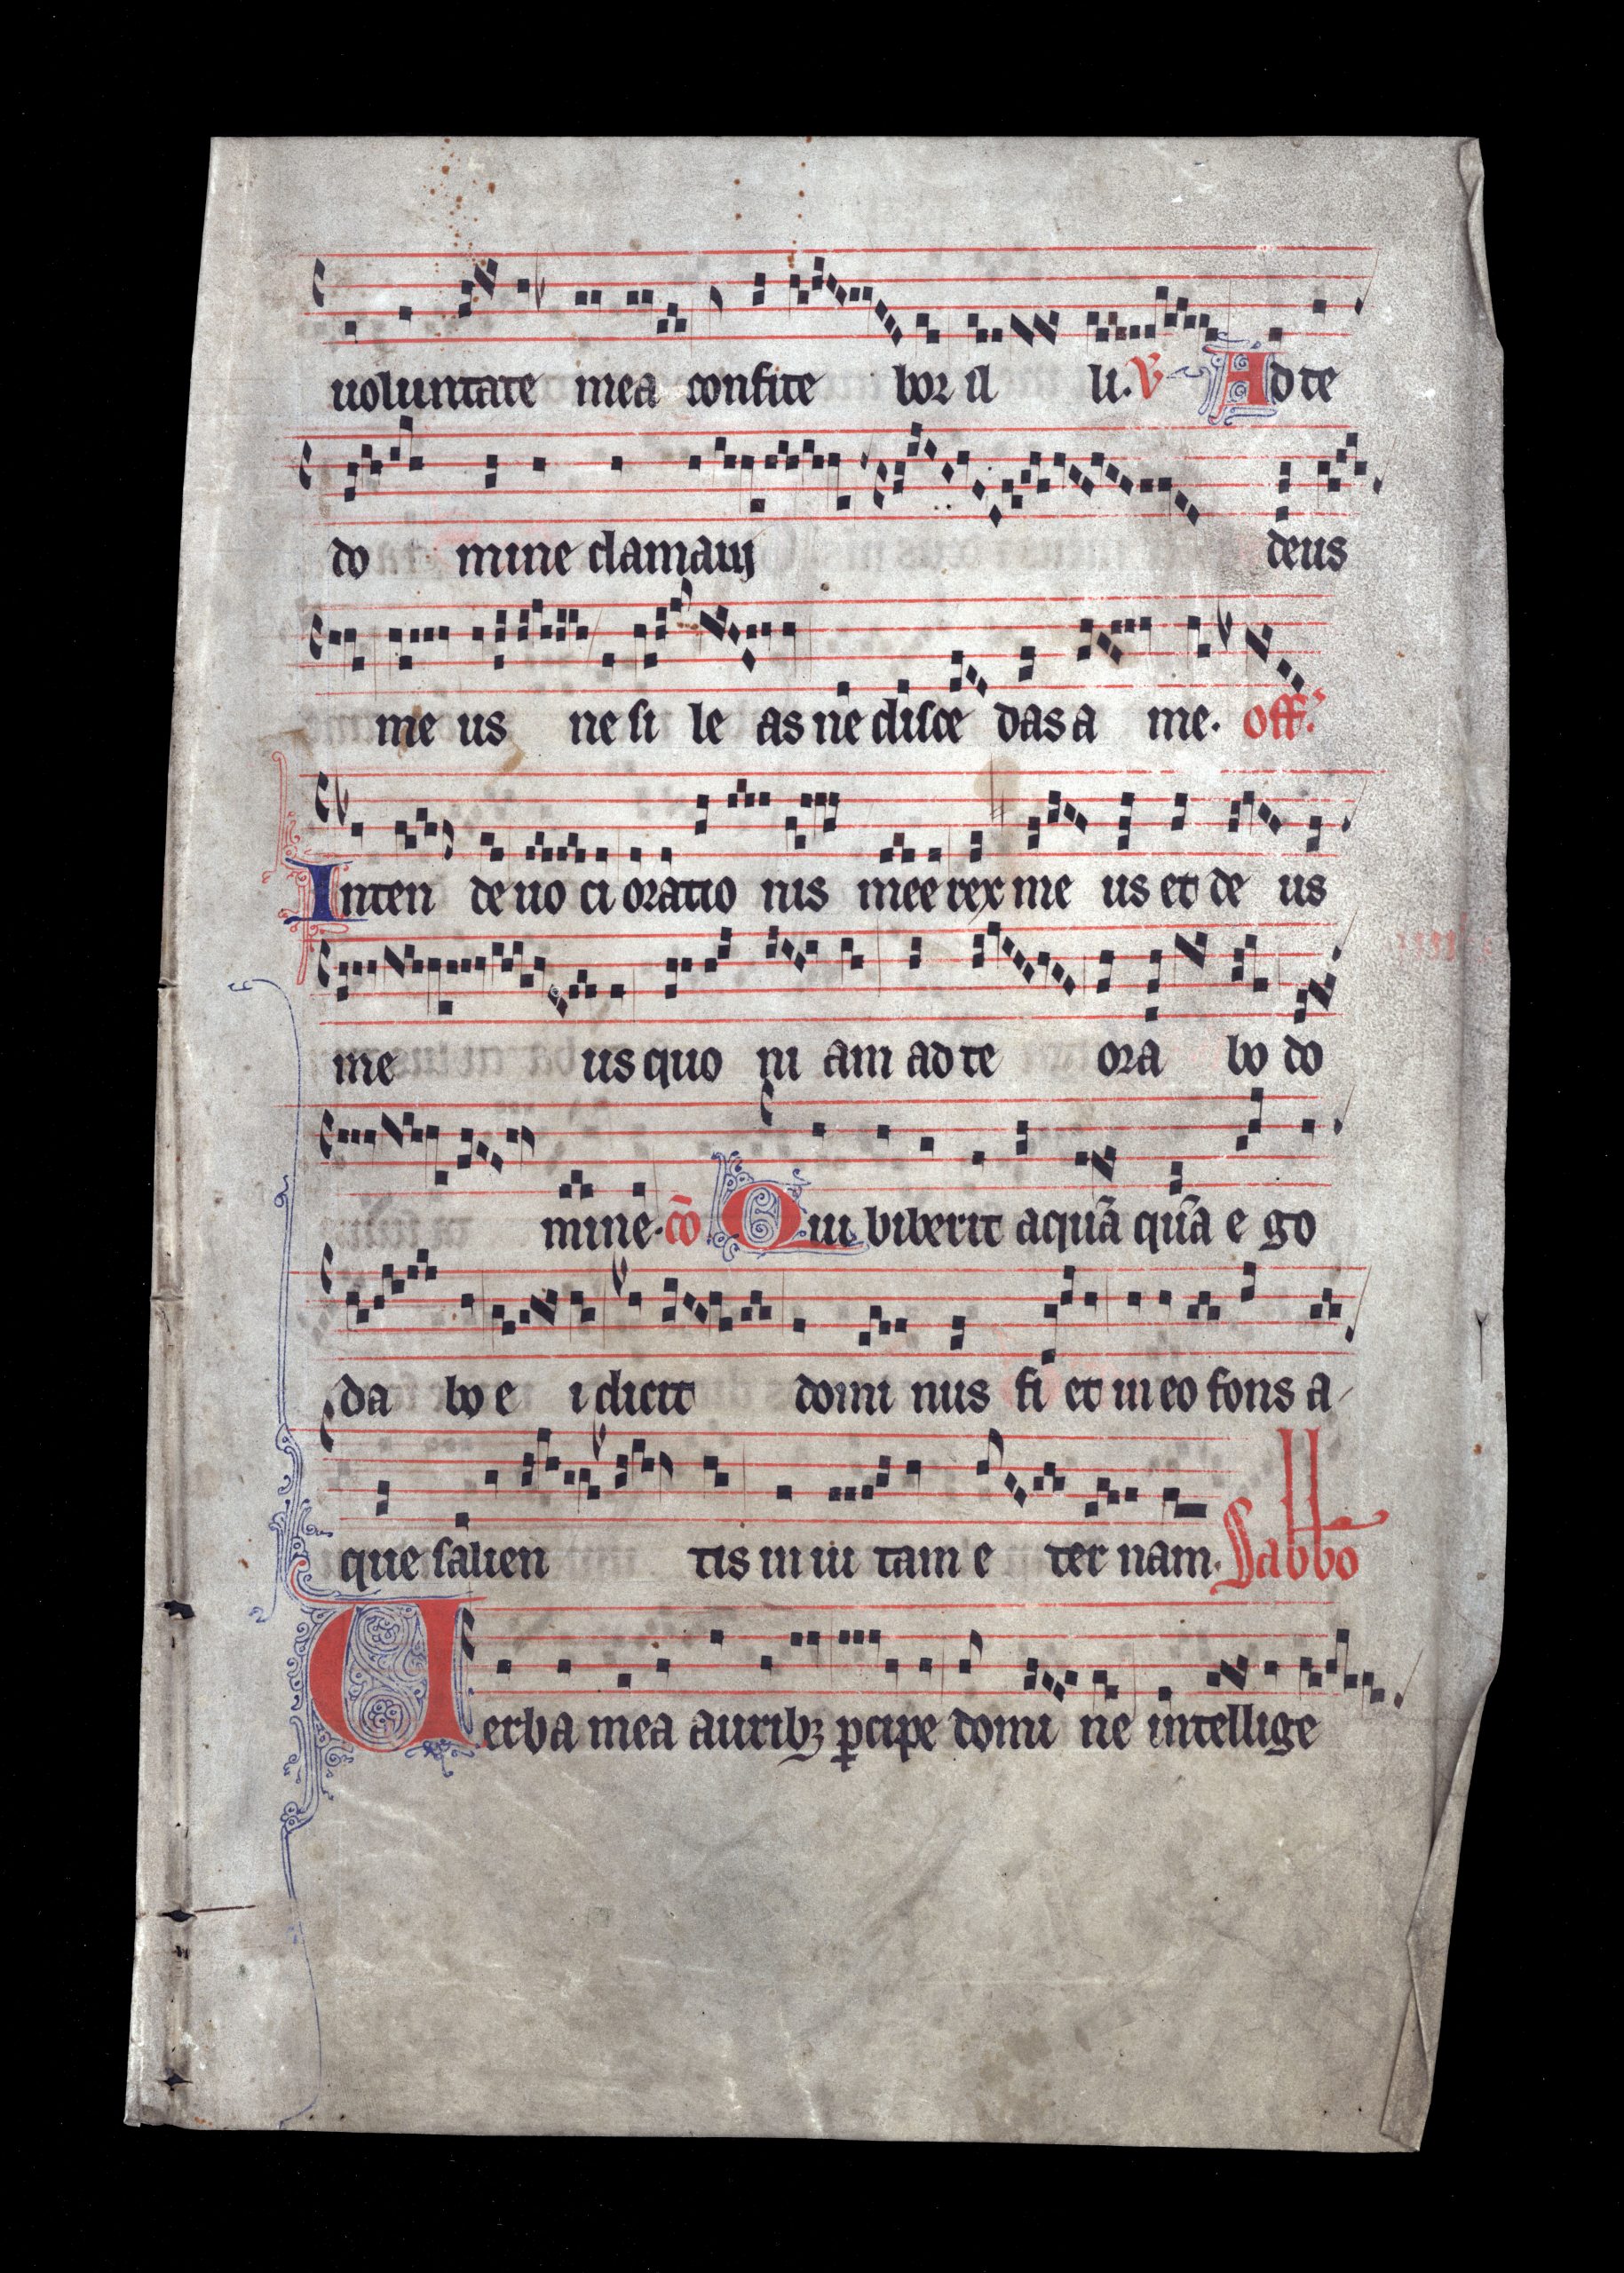 uoluntate mea confite bor il li. V Ad te
do mine clamauj deus
me us ne si le as ne disce das a me. off.
Inten de uo ci oratio nis mee rex me us et de us
me us quo ni am ad te ora bo do
mine. cō Qui biberit aquā quā e go
da bo e i dicit domi nus fi et in eo fons a
que salien tis in ui tam e ter nam. Sabbo
Uerba mea auribꝫ ꝑcipe domi ne intellige